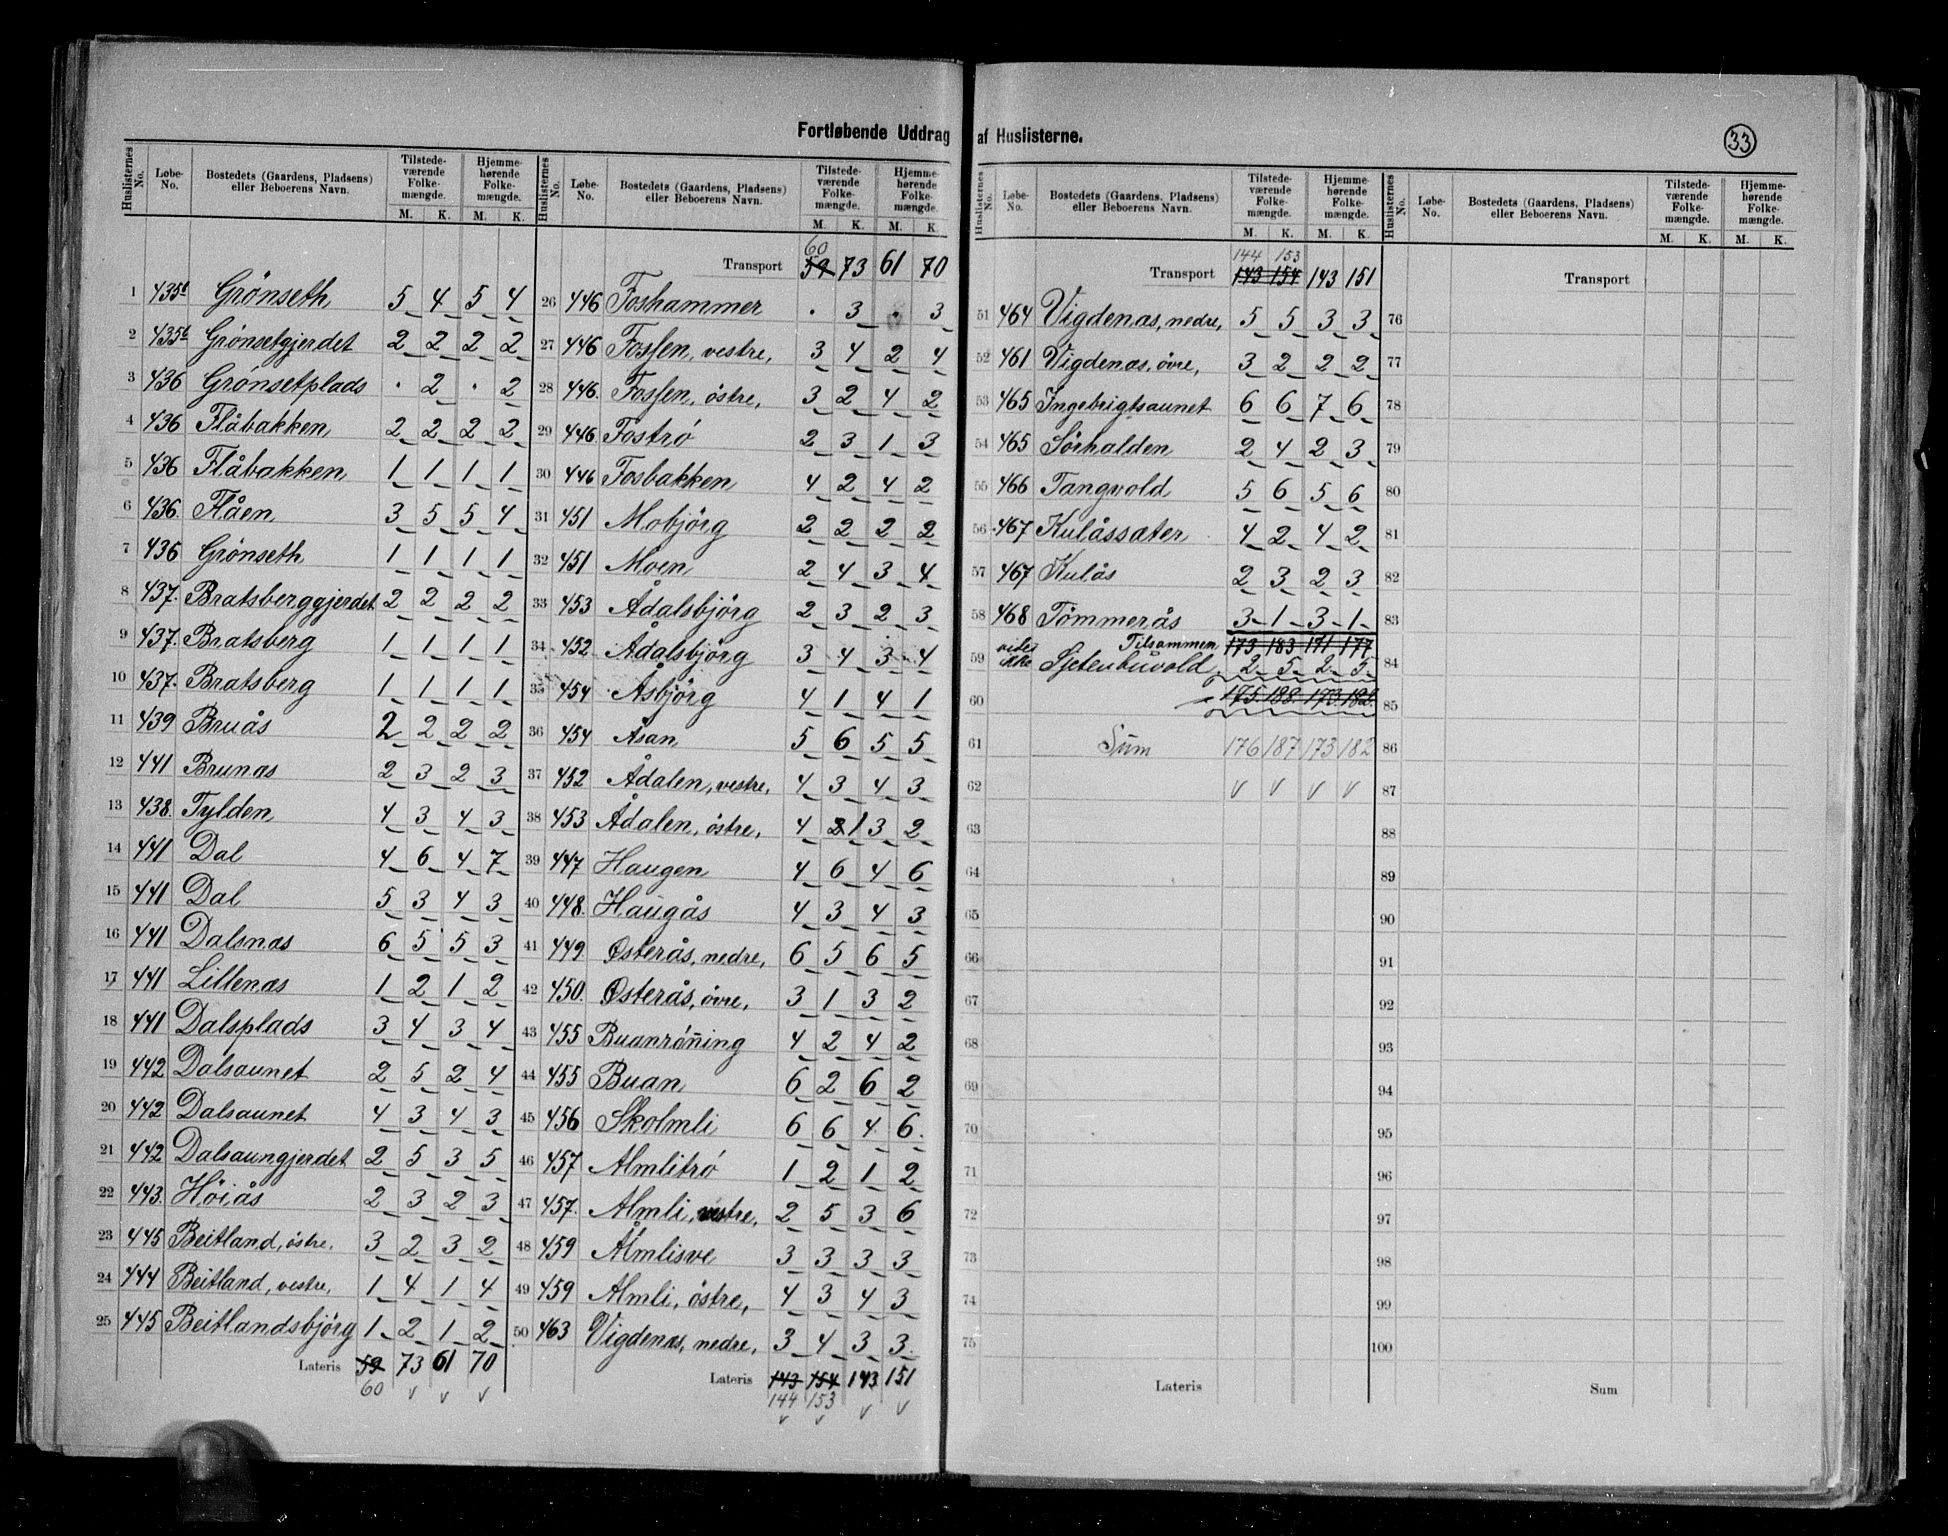 Fortløbende Uddrag af Huslisterne.
33
Huslisternes No. Løbe-No. Bostedets (Gaardens, Pladsens) eller Beboerens Navn. Tilstede-værende Folke-mængde. M. K. Hjemme-hørende Folke-mængde. M. K.
1 435b Grønseth 5 4 5 4
2 435b Grønsetgjerdet 2 2 2 2
3 436 Grønsetplads . 2 . 2
4 436 Flåbakken 2 2 2 2
5 436 Flåbakken 1 1 1 1
6 436. Flåen 3 5 5 4
7 436 Grønseth 1 1 1 1
8 437. Bratsberggjerdet 2 2 2 2
9 437. Bratsberg 1 1 1 1
10 437. Bratsberg 1 1 1 1
11 439 Bruås 2 2 2 2
12 441 Brunæs 2 3 2 3
13 438. Tylden 4 3 4 3
14 441 Dal 4 6 4 7
15 441 Dal 5 3 4 3
16 441 Dalsnæs 6 5 5 3
17 441 Lillenæs 1 2 1 2
18 441 Dalsplads 3 4 3 4
19 442 Dalsaunet 2 5 2 4
20 442 Dalsaunet 4 3 4 3
21 442 Dalsaungjerdet 2 5 3 5
22 443. Høiås 2 3 2 3
23 445 Beitland, østre, 3 2 3 2
24 444 Beitland, vestre, 1 4 1 4
25 445 Beitlandsbjørg 1 2 1 2
Lateris 59 73 61 70
60 v v v
Huslisternes No. Løbe-No. Bostedets (Gaardens, Pladsens) eller Beboerens Navn. Tilstede-værende Folke-mængde. M. K. Hjemme-hørende Folke-mængde. M. K.
60
Transport 59 73 61 70
26 446 Foshammer . 3 . 3
27 446 Fossen, vestre, 3 4 2 4
28 446. Fossen, østre, 3 2 4 2
29 446. Fostrø 2 3 1 3
30 446 Fosbakken 4 2 4 2
31 451 Mobjørg 2 2 2 2
32 451 Moen 2 4 3 4
33 453 Ådalsbjørg 2 3 2 3
34 452 Ådalsbjørg 3 4 3 4
35 454 Åsbjørg 4 1 4 1
36 454 Åsan 5 6 5 5
37 452 Ådalen, vestre, 4 3 4 3
38 453 Ådalen, østre, 4 2 1 3 2
39 447 Haugen 4 6 4 6
40 448. Haugås 4 3 4 3
41 449. Østerås, nedre, 6 5 6 5
42 450. Østerås, øvre, 3 1 3 2
43 455 Buanrøning 4 2 4 2
44 455 Buan 6 2 6 2
45 456 Skolmli 6 6 4 6
46 457 Almlitrø 1 2 1 2
47 457. Almli, vestre, 2 5 3 6
48 459 Almlisve 3 3 3 3
49 459 Almli, østre, 4 3 4 3
50 463 Vigdenæs, nedre, 3 4 3 3
Lateris 143 154 143 151
144 153 v v
v v
Huslisternes No. Løbe-No. Bostedets (Gaardens, Pladsens) eller Beboerens Navn. Tilstede-værende Folke-mængde. M. K. Hjemme-hørende Folke-mængde. M. K.
144 153
Transport 143 154 143 151
51 464 Vigdenæs, nedre, 5 5 3 3
52 461 Vigdenæs, øvre, 3 2 2 2
53 465 Ingebrigtsaunet 6 6 7 6
54 465 Sørhalden 2 4 2 3
55 466 Tangvold 5 6 5 6
56 467 Kulåssæter 4 2 4 2
57 467 Kulås 2 3 2 3
58 468 Tømmerås 3 1 3 1
Tilsammen 173 183 171 177
59 Sjetenbuvold 2 5 2 5
60 175 188 173 182
61 Sum 176 187 173 182
62 v v v v
63
64
65
66
67
68
69
70
71
72
73
74
75
Lateris
Huslisternes No. Løbe-No. Bostedets (Gaardens, Pladsens) eller Beboerens Navn. Tilstede-værende Folke-mængde. M. K. Hjemme-hørende Folke-mængde. M. K.
Transport
76
77
78
79
80
81
82
83
84
85
86
87
88
89
90
91
92
93
94
95
96
97
98
99
100
Sum